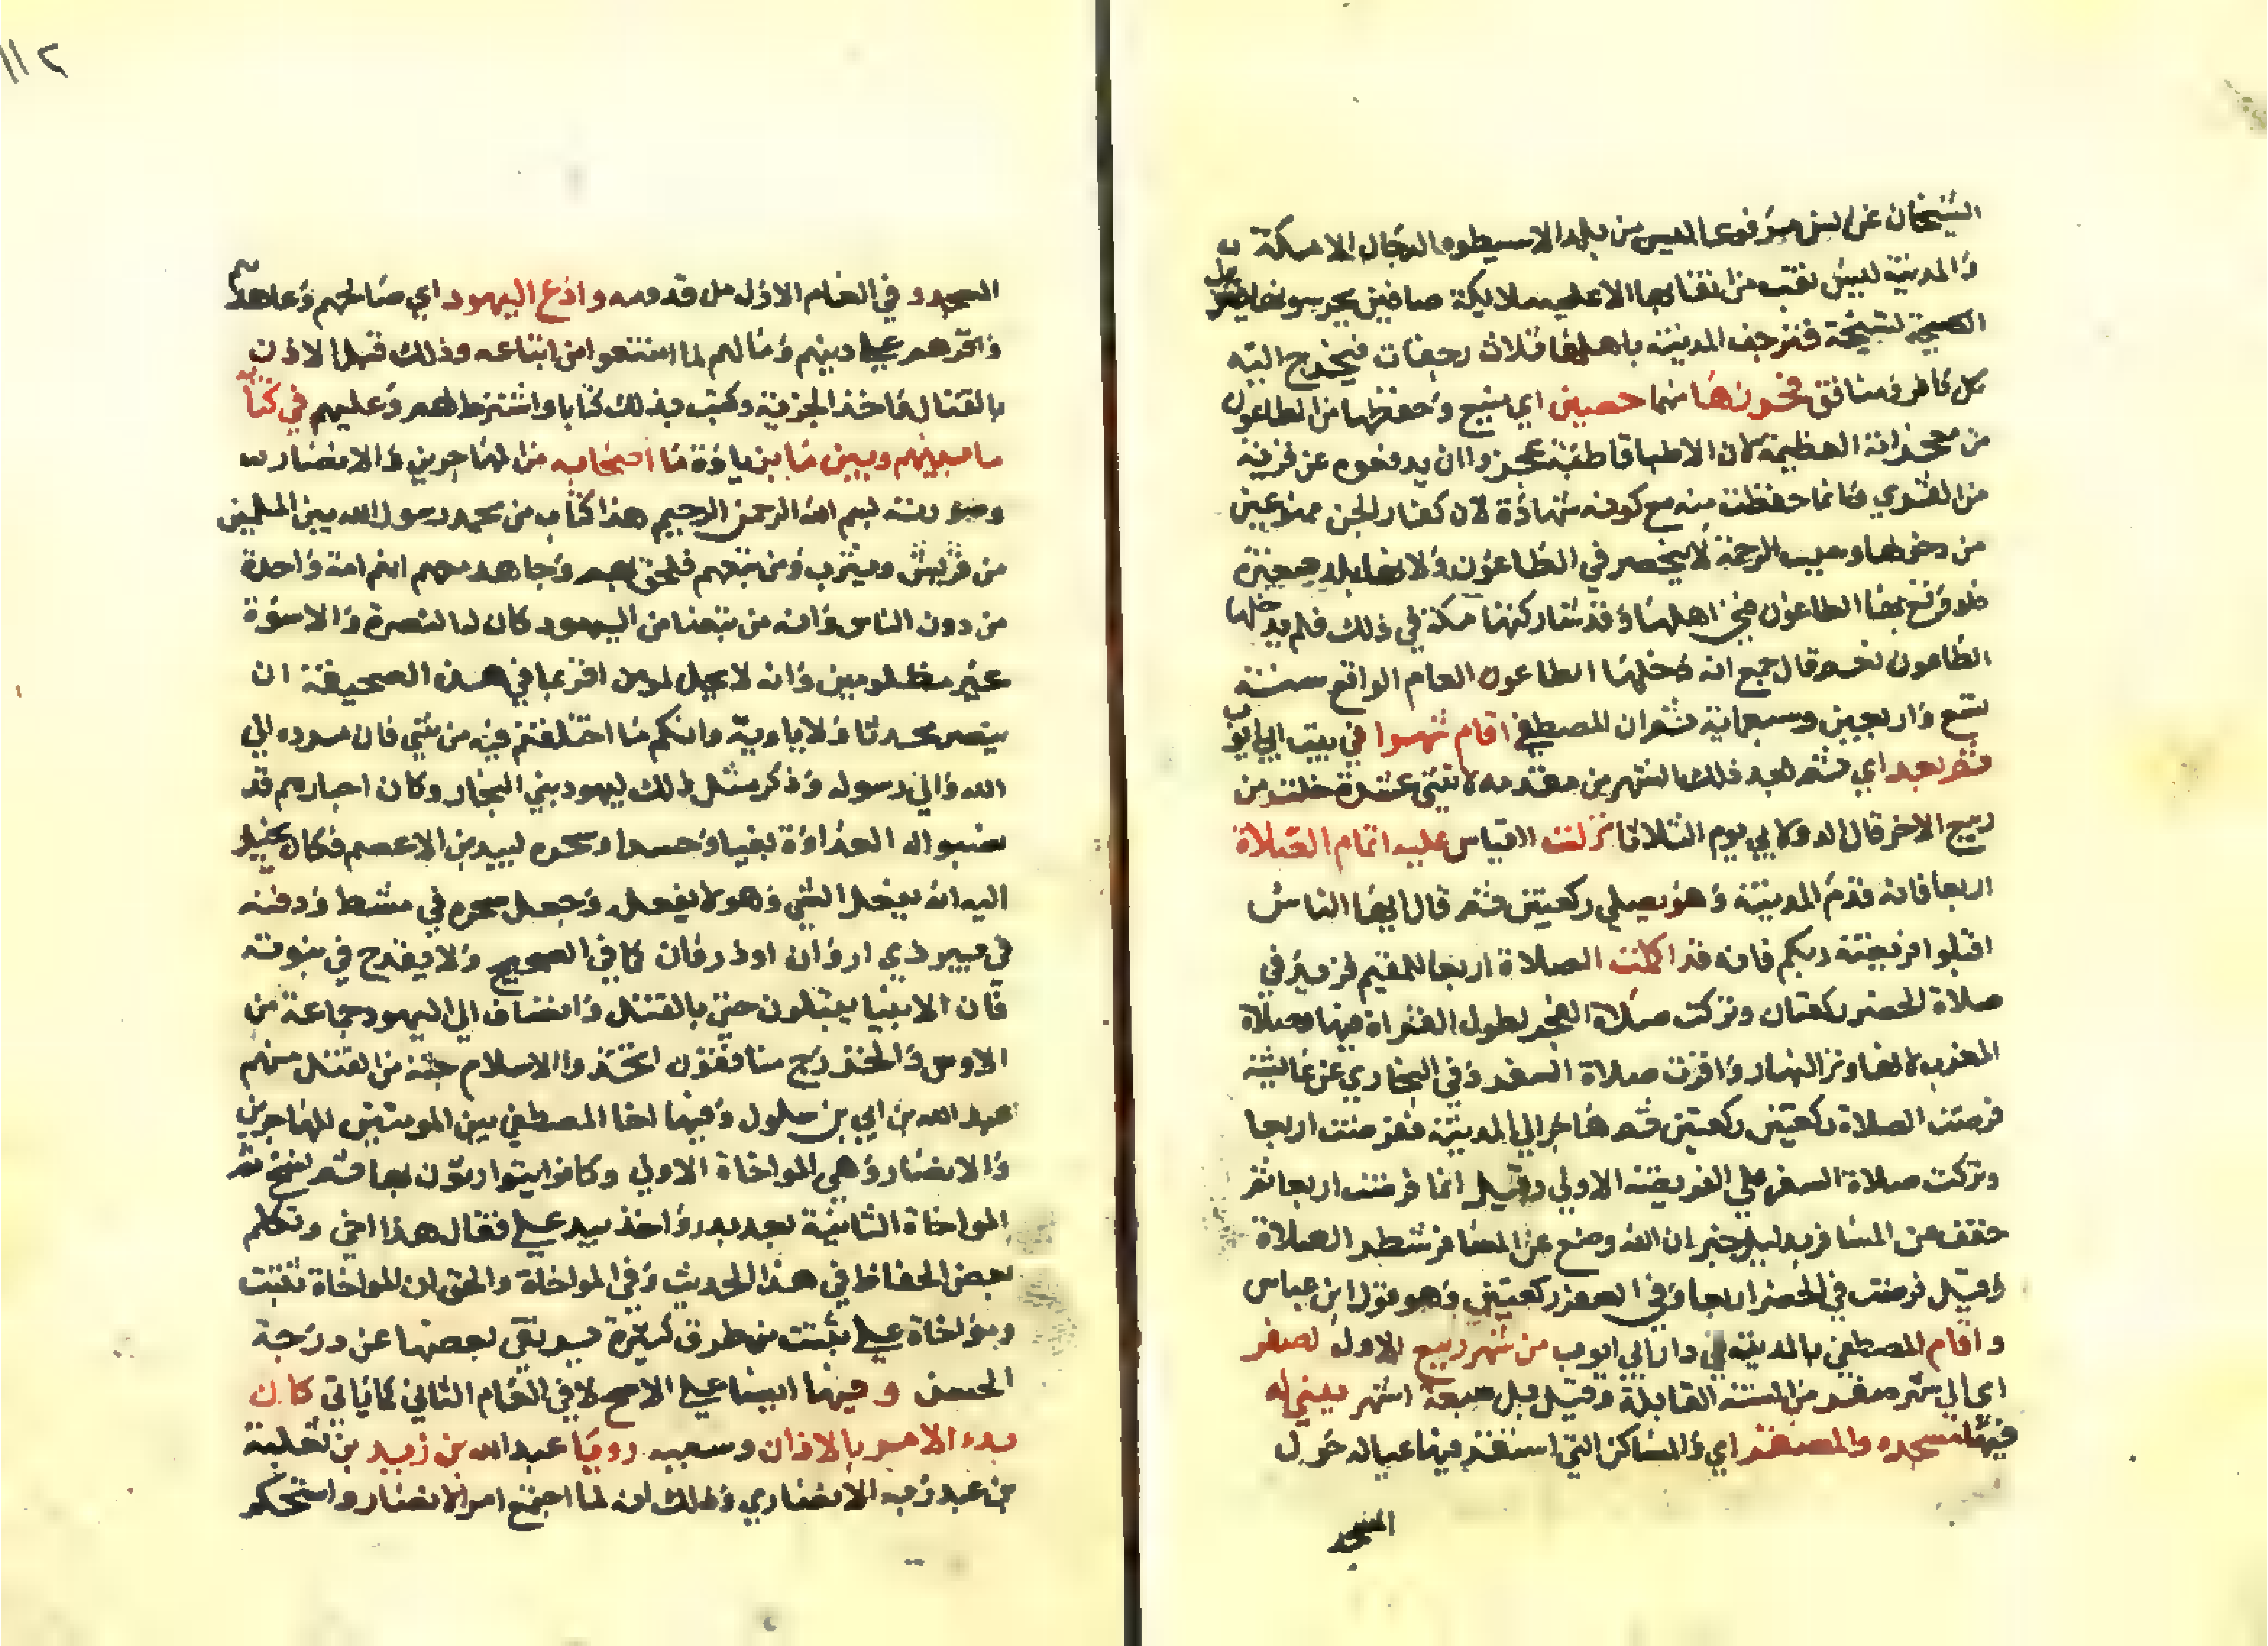 الشيخان عن انس مرفوعا ليس من بلد الا سيطوه الدجال الا مكة
والمدينة ليس نقب من انقابها الا عليه ملائكة صافين يحرسونها
السبخة فترجف المدينة باهلها ثلاث رجفات فيخرج اليه
كل كافر ومنافق حصين اي منيع وحفظها من الطاعون
من معجزاته العظيمة لان الاطبا قاطبة عجزوا ان يدفعوه عن قرية
من القري وانما حفظت منه مع كونه شهادة لان كفار الجن ممنوعين
من دخولها وسبب الرحمة لا ينحصر في الطاعون ولانها بلد صغيرة
فلو وقع بها الطاعون فني اهلها وقد شاركتها مكة في ذلك فلم يدخلها
الطاعون نعم قال جمع انه دخلها الطاعون العام الواقع سنة
تسع واربعين وسبعماية ثم ان المصطفي اقام شهرا في بيت ابي ايوب
ثم بعد اي ثم بعد ذلك الشهر من مقدمه لاثنتي عشرة خلت من
ربيع الاخر قال الدولابي يوم الثلاثا نزلت عليه اتمام الصلاة
اربعا فانه قدم المدينة وهو يصلي ركعتين ثم قال ايها الناس
اقبلوا فريضة ربكم فانه قد اكملت الصلاة اربعا للمقيم
صلاة الحضر ركعتان وتركت صلاة الفجر لطول القراة فيها وصلاة
المغرب لانها وتر النهار واقرت صلاة السفر وفي البخاري عن عائشة
فرضت الصلاة ركعتين ركعتين ثم هاجر الي المدينة ففرضت اربعا
وتركت صلاة السفر علي الفريضة الاولي وقيل انما فرضت اربعا ثم
خفف عن المسافر بدليل خبر ان الله وضع عن المسافر شطر الصلاة
وقيل فرضت في الحضر اربعا وفي السفر ركعتين وهو قول ابن عباس
واقام المصطفي بالمدينة في دار ابي ايوب من شهر ربيع الاول لصفر
اي الي شهر صفر من السنة القابلة وقيل بل سبعة اشهر يبني له
فيها مسجده والمستقر اي والمساكن التي استقر فيها عياله حول
المسجد
١١٢
المسجد و في العام الاول من قدومه وادع اليهود اي صالحهم وعاهدهم
واقرهم علي دينهم ومالهم لما امتنعوا من اتباعه وذلك قبل الاذن
بالقتال واخذ الجزية وكتب بذلك كتابا واشترط لهم وعليهم في كتابه
ما بينهم وبين اصحابه من المهاجرين والانصار
وصورته بسم الله الرحمن الرحيم هذا كتاب من محمد رسول الله بين المسلمين
من قريش ويثرب ومن تبعهم فلحق بهم وجاهد معهم انهم امة واحدة
من دون الناس وانه من تبعنا من اليهود كان له النصرة والاسوة
غير مظلومين وانه لا يحل لمومن اقر بما في هذه الصحيفة ان
ينصر محدثا ولا ياويه وانكم ما اختلفتم فيه من شي فان مرده الي
الله والي رسوله وذكر مثل ذلك ليهود بني النجار وكان احبارهم قد
نصبوا له العداوة بغيا وحسدا وسحره لبيد بن الاعصم فكان يخيل
اليه انه يفعل الشي وهو لا يفعل وجعل سحره في مشط ودفنه
في بير ذي اروان او ذروان كما في الصحيح ولا يقدح في نبوته
فان الانبيا يبتلون حتي بالقتل وانضاف الي اليهود جماعة من
الاوس والخزرج منافقون اتخذوا الاسلام جنة من القتل منهم
عبد الله بن ابي بن سلول وفيها اخا المصطفي بين المومنين المهاجرين
والانصار وهي المواخاة الاولي وكانوا يتوارثون بها ثم نسخ ثم
المواخاة الثانية بعد بدر واخذ بيد علي فقال هذا اخي وتكلم
بعض الحفاظ في هذا الحديث وفي المواخاة والحق ان المواخاة ثبتت
ومؤاخاة علي ثبتت من طرق كثيرة يرتقي بعضها عن درجة
الحسن وفيها ايضا علي الاصح لا في العام الثاني كما ياتي كان
بدء الامر بالاذان وسببه رويا عبد الله بن زيد بن ثعلبة
بن عبد ربه الانصاري وذلك انه لما اجتمع امر الانصار واستحكم